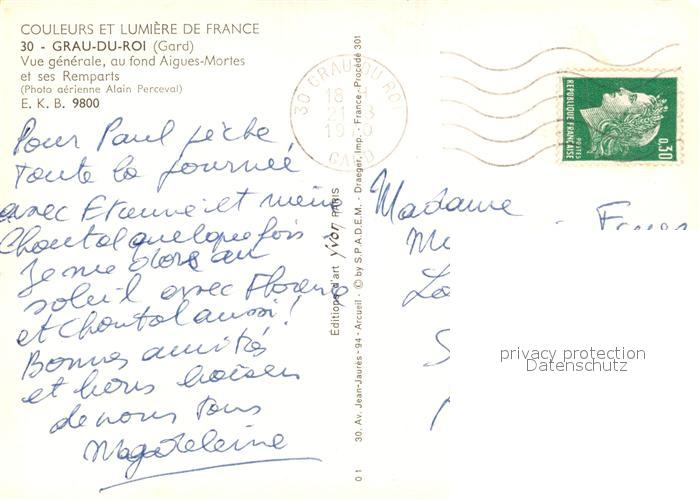 COULEURS ET LUMIÈRE DE FRANCE
30 - GRAU-DU-ROI (Gard)
Vue générale, au fond Aigues-Mortes
et ses Remparts
(Photo aérienne Alain Perceval)
E. K. B. 9800
Pour Paul pêche
toute la journée
avec Etienne et même
Chantal quelquefois
Je me dore au
soleil avec Florence
et Chantal aussi !
Bonnes amitiés
et bons baisers
de nous tous
Magdeleine
Editions d'art yvon PARIS
30. Av. Jean-Jaurès - 94 - Arcueil - © by S.P.A.D.E.M. - Draeger, Imp. - France - Procédé 301
01
30 GRAU DU ROI
18 H
21 8
GARD
REPUBLIQUE FRANÇAISE
POSTES
0,30
Madame
privacy protection
Datenschutz